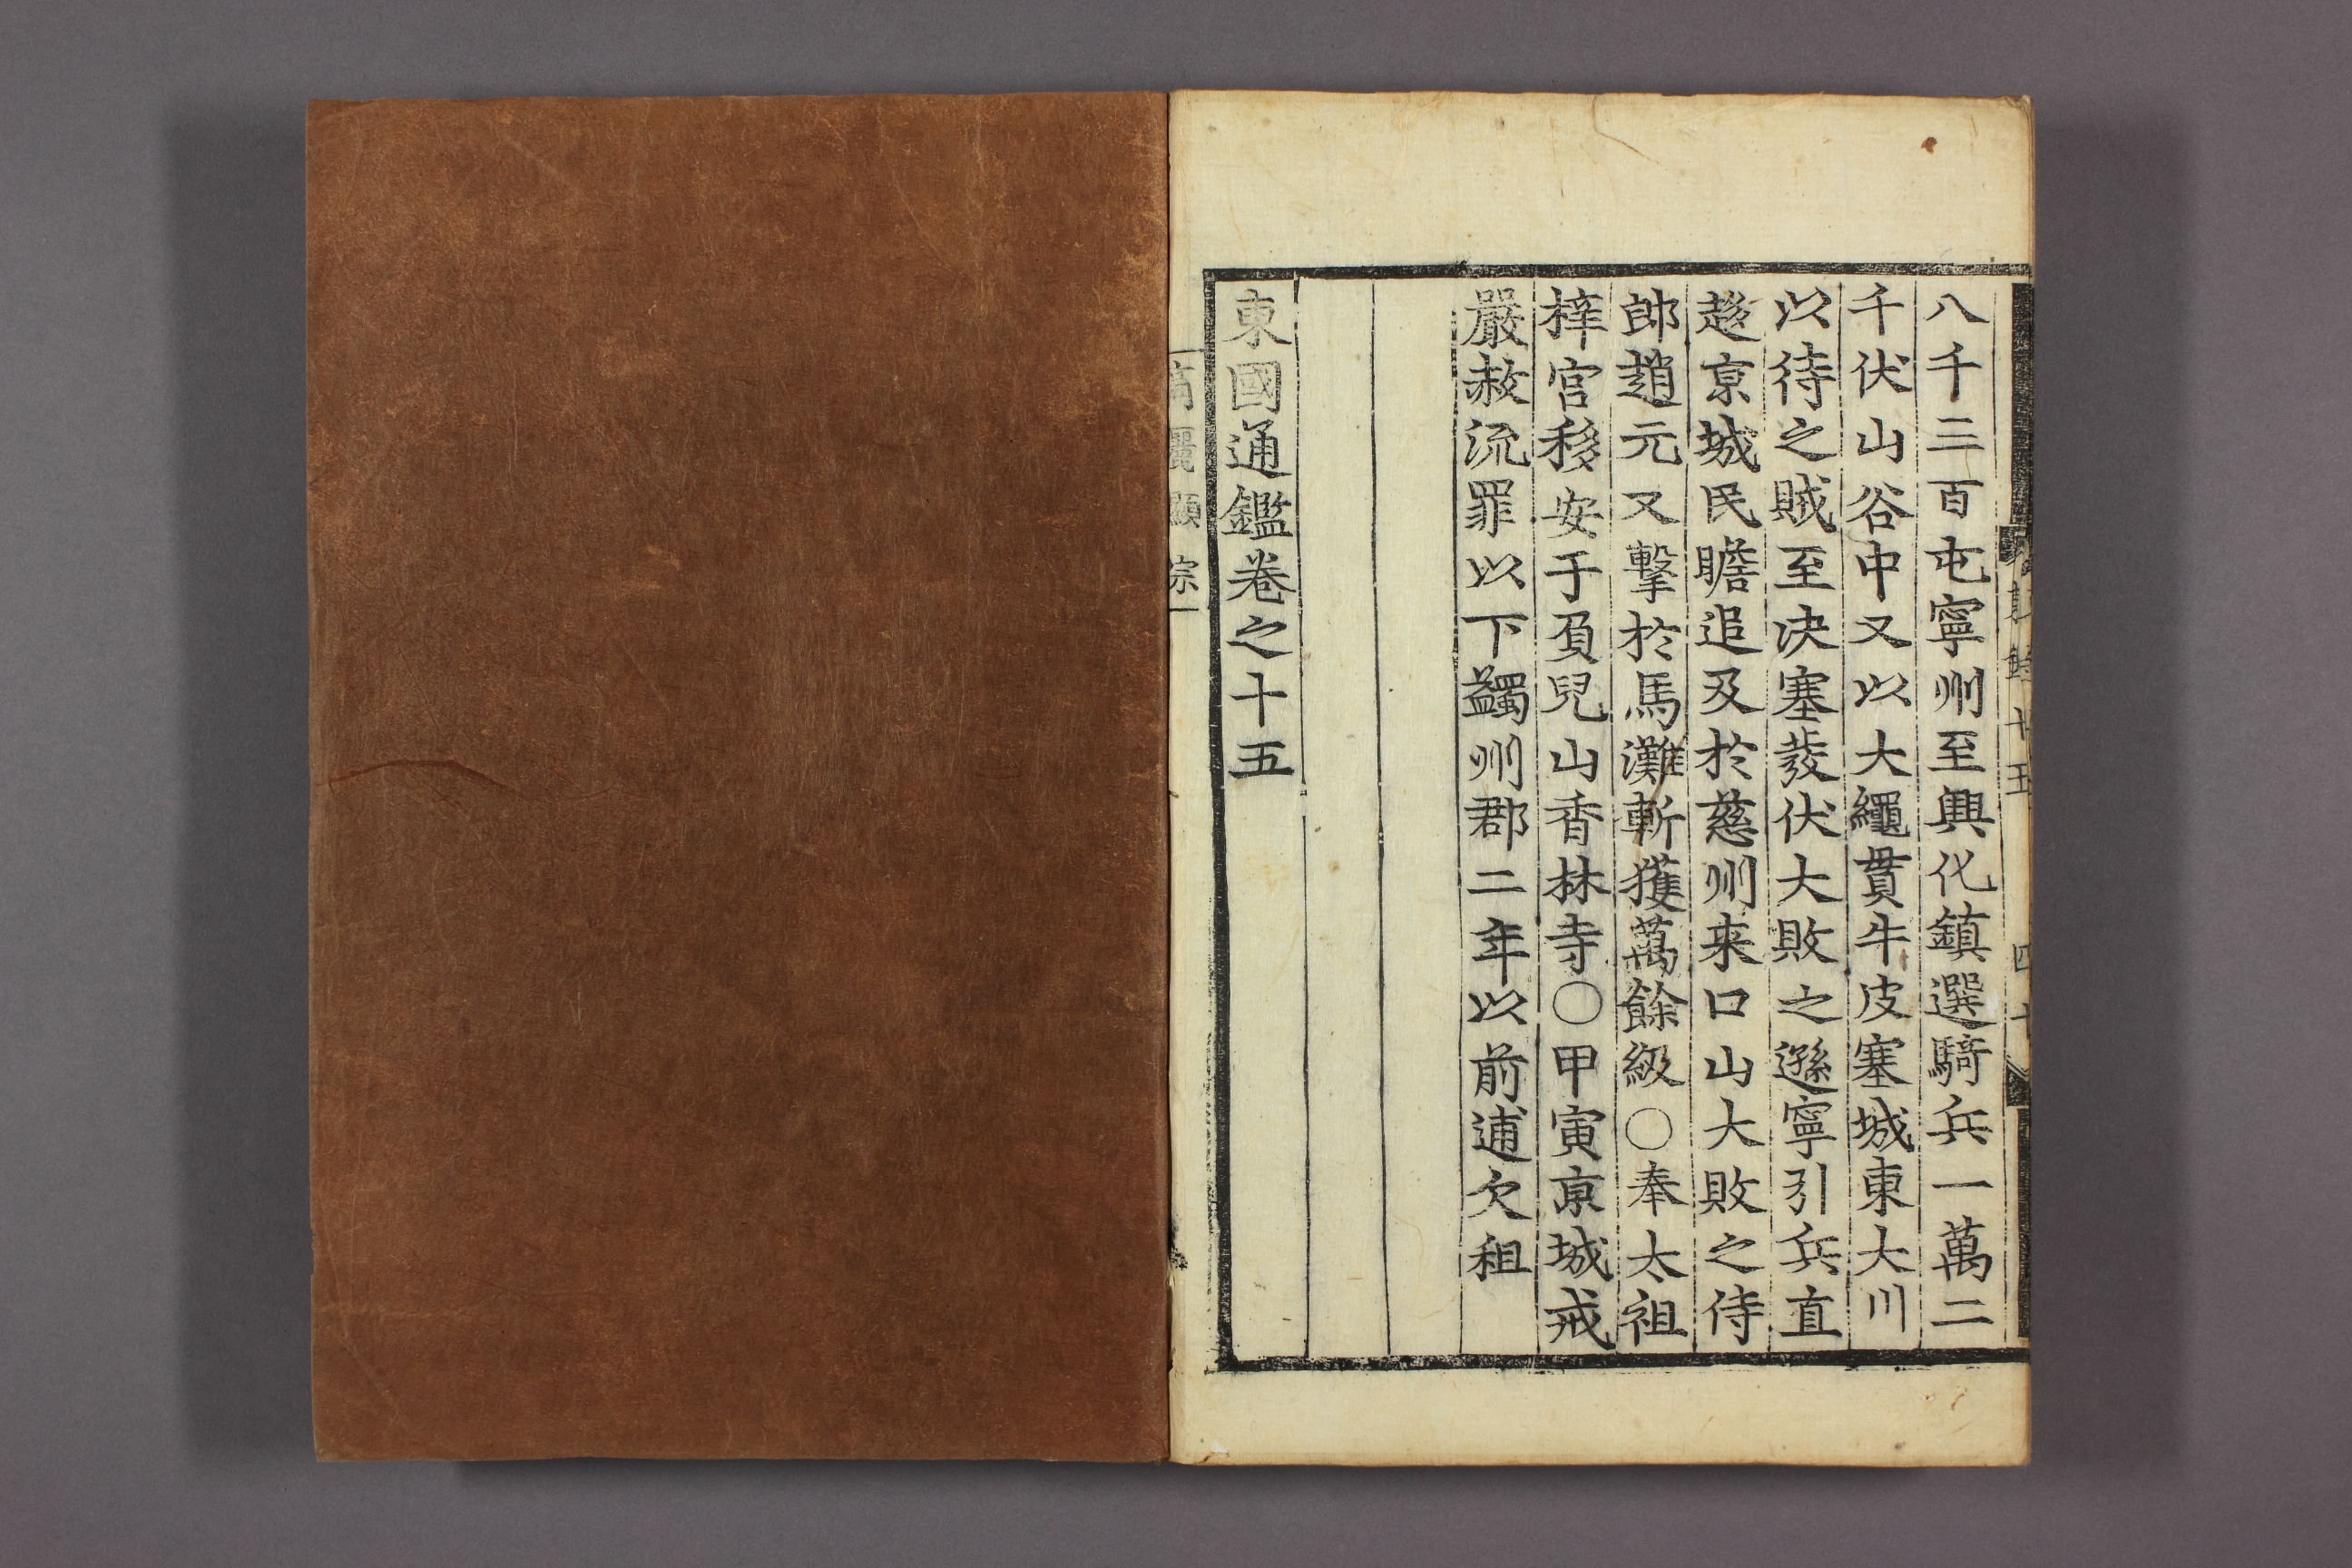 八千三百屯寧州至興化鎮選騎兵一萬二
千伏山谷中又以大繩貫牛皮塞城東大川
以待之賊至决塞發伏大敗之遜寧引兵直
趍京城民瞻追及於慈州来口山大敗之侍
郎趙元又擊於馬灘斬獲萬餘級○奉太祖
梓宮移安于負兒山香林寺○甲寅京城戒
嚴赦流罪以下蠲州郡二年以前逋欠租
東國通鑑卷之十五
高麗顯宗
十五
四十